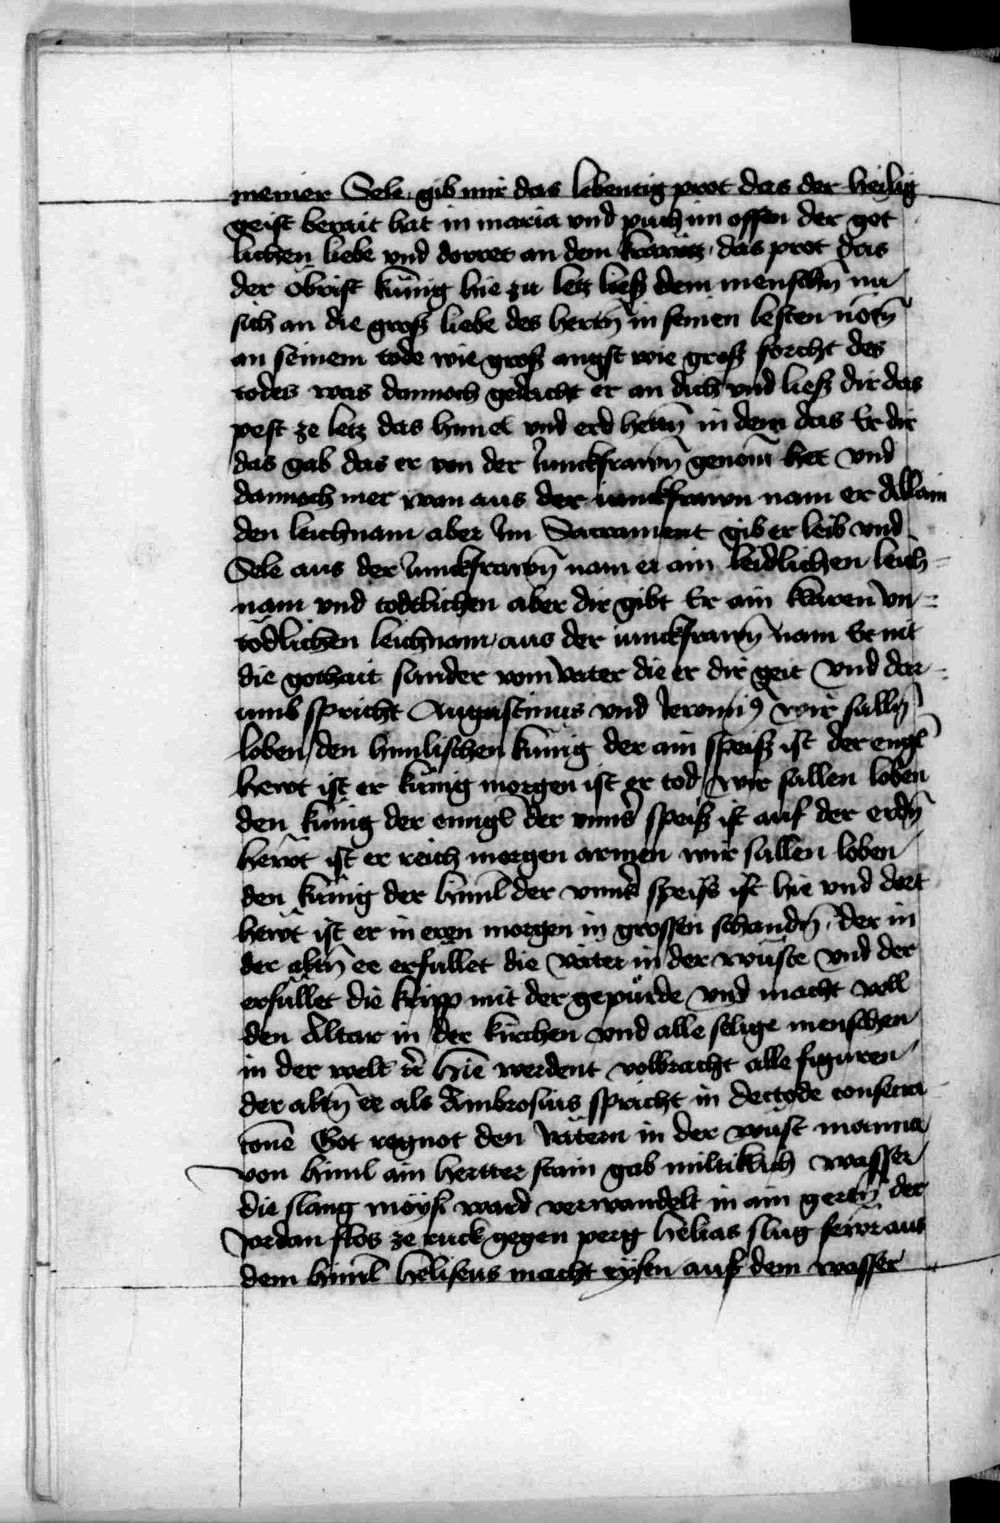 meiner Sele gib mir das lebentig prot das der heilig
geist berait hat in maria vnd puch im offen der got
lichen liebe vnd derret an dem krewtz das prot das
der öbrist künig hie zu letz ließ dem menschn̄ nu
sich an die groß liebe des herrn̄ in seinen lesten nötn̄
an seinem tode wie groß angst wie groß forcht des
todes was dannoch gedacht er an dich vnd ließ dir das
pest ze letz das himel vnd erd hettn̄ in dem das Er dir
das gab das er von der Junckfrawn̄ genom̄ het vnd
dannoch mer wan aus der iunckfrawn nam er Allain
den leichnam aber Im Sacrament gib er leib vnd
Sele aus der Junckfrawn̄ nam er ain leidlichen leich-
nam vnd todtlichen aber dir gibt Er ain klaren vn-
tödlichen leichnam aus der iunckfrawn̄ nam Er nit
die gothait sunder vom vater die er dir geit vnd dar-
umb spricht Augustinus vnd Jeronimꝰ wir sülln̄
loben den himlischen künig der ain speiß ist der engl̄
hewt ist er künig morgen ist er tod wir süllen loben
den künig der enngl̄ der vnns̄ speiß ist auf der erdn̄
hewt ist er reich morgen armen wir süllen loben
den künig der himl̄ der vnns̄ speiß ist hie vnd dort
hewt ist er in eren morgen in grossen schandn̄ der in
der altn̄ ee erfüllet die väter in der wüste vnd der
erfüllet die kripp mit der gepürde vnd macht voll
den Altar in der kirchen vnd alle selige menschen
in der welt hie werdent volbracht alle figuren
der altn̄ ee als Ambrosius spricht in consecra
cione Got regnot den vätern in der wüst manna
von himl ain hertter stain gab miltiklich wasser
die slang möysi ward verwandelt in ain gertn̄ der
Jordan flos ze ruck gegen perg helias slug fewr aus
dem himl̄ heliseus macht eysen auf dem wasser